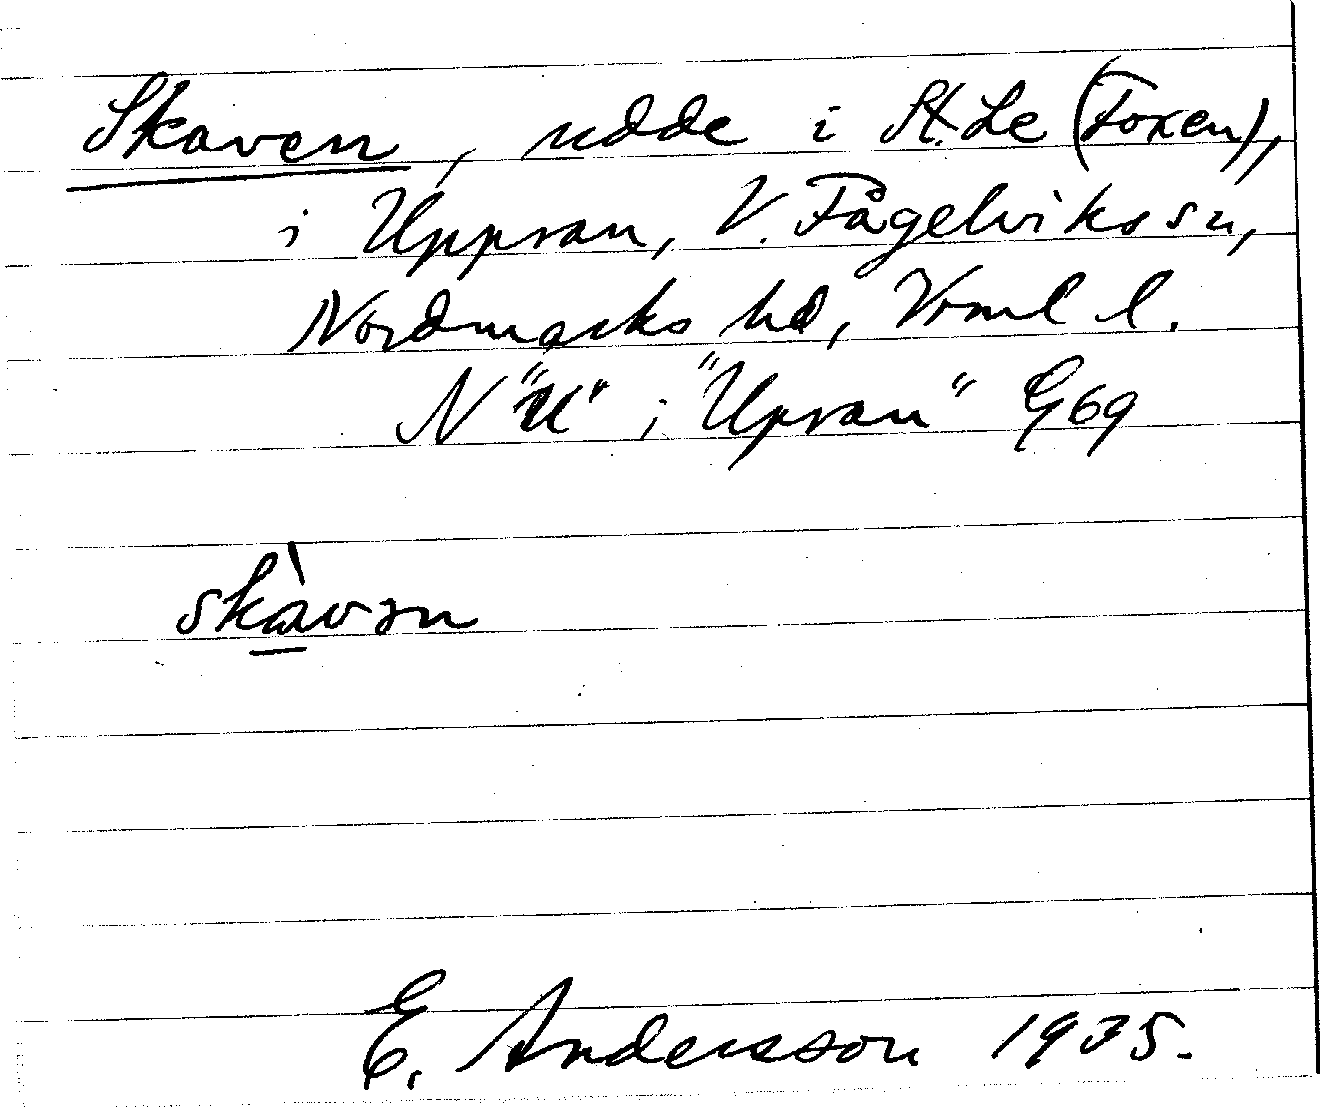 Skaven, udde i St. Le (Foxen),
i Uppsan, V. Fågelviks sn,
Nordmarks hd, Vrml l.
N "U" i "Upsan" G69
skàvən
E. Andersson 1935.